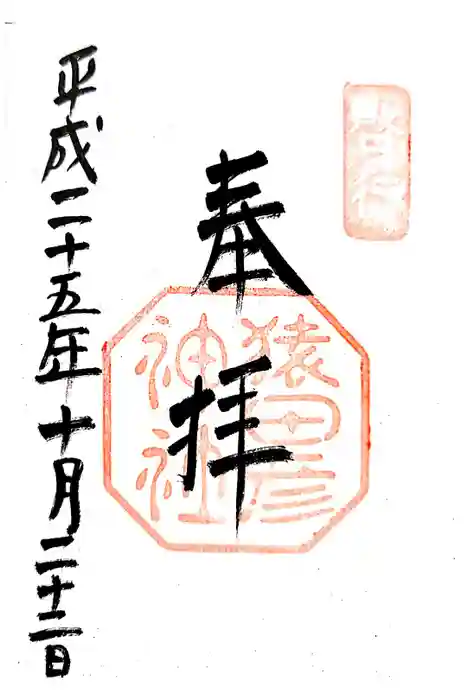 啓行
奉拝
猿田彦
神社
平成二十五年十月二十二日